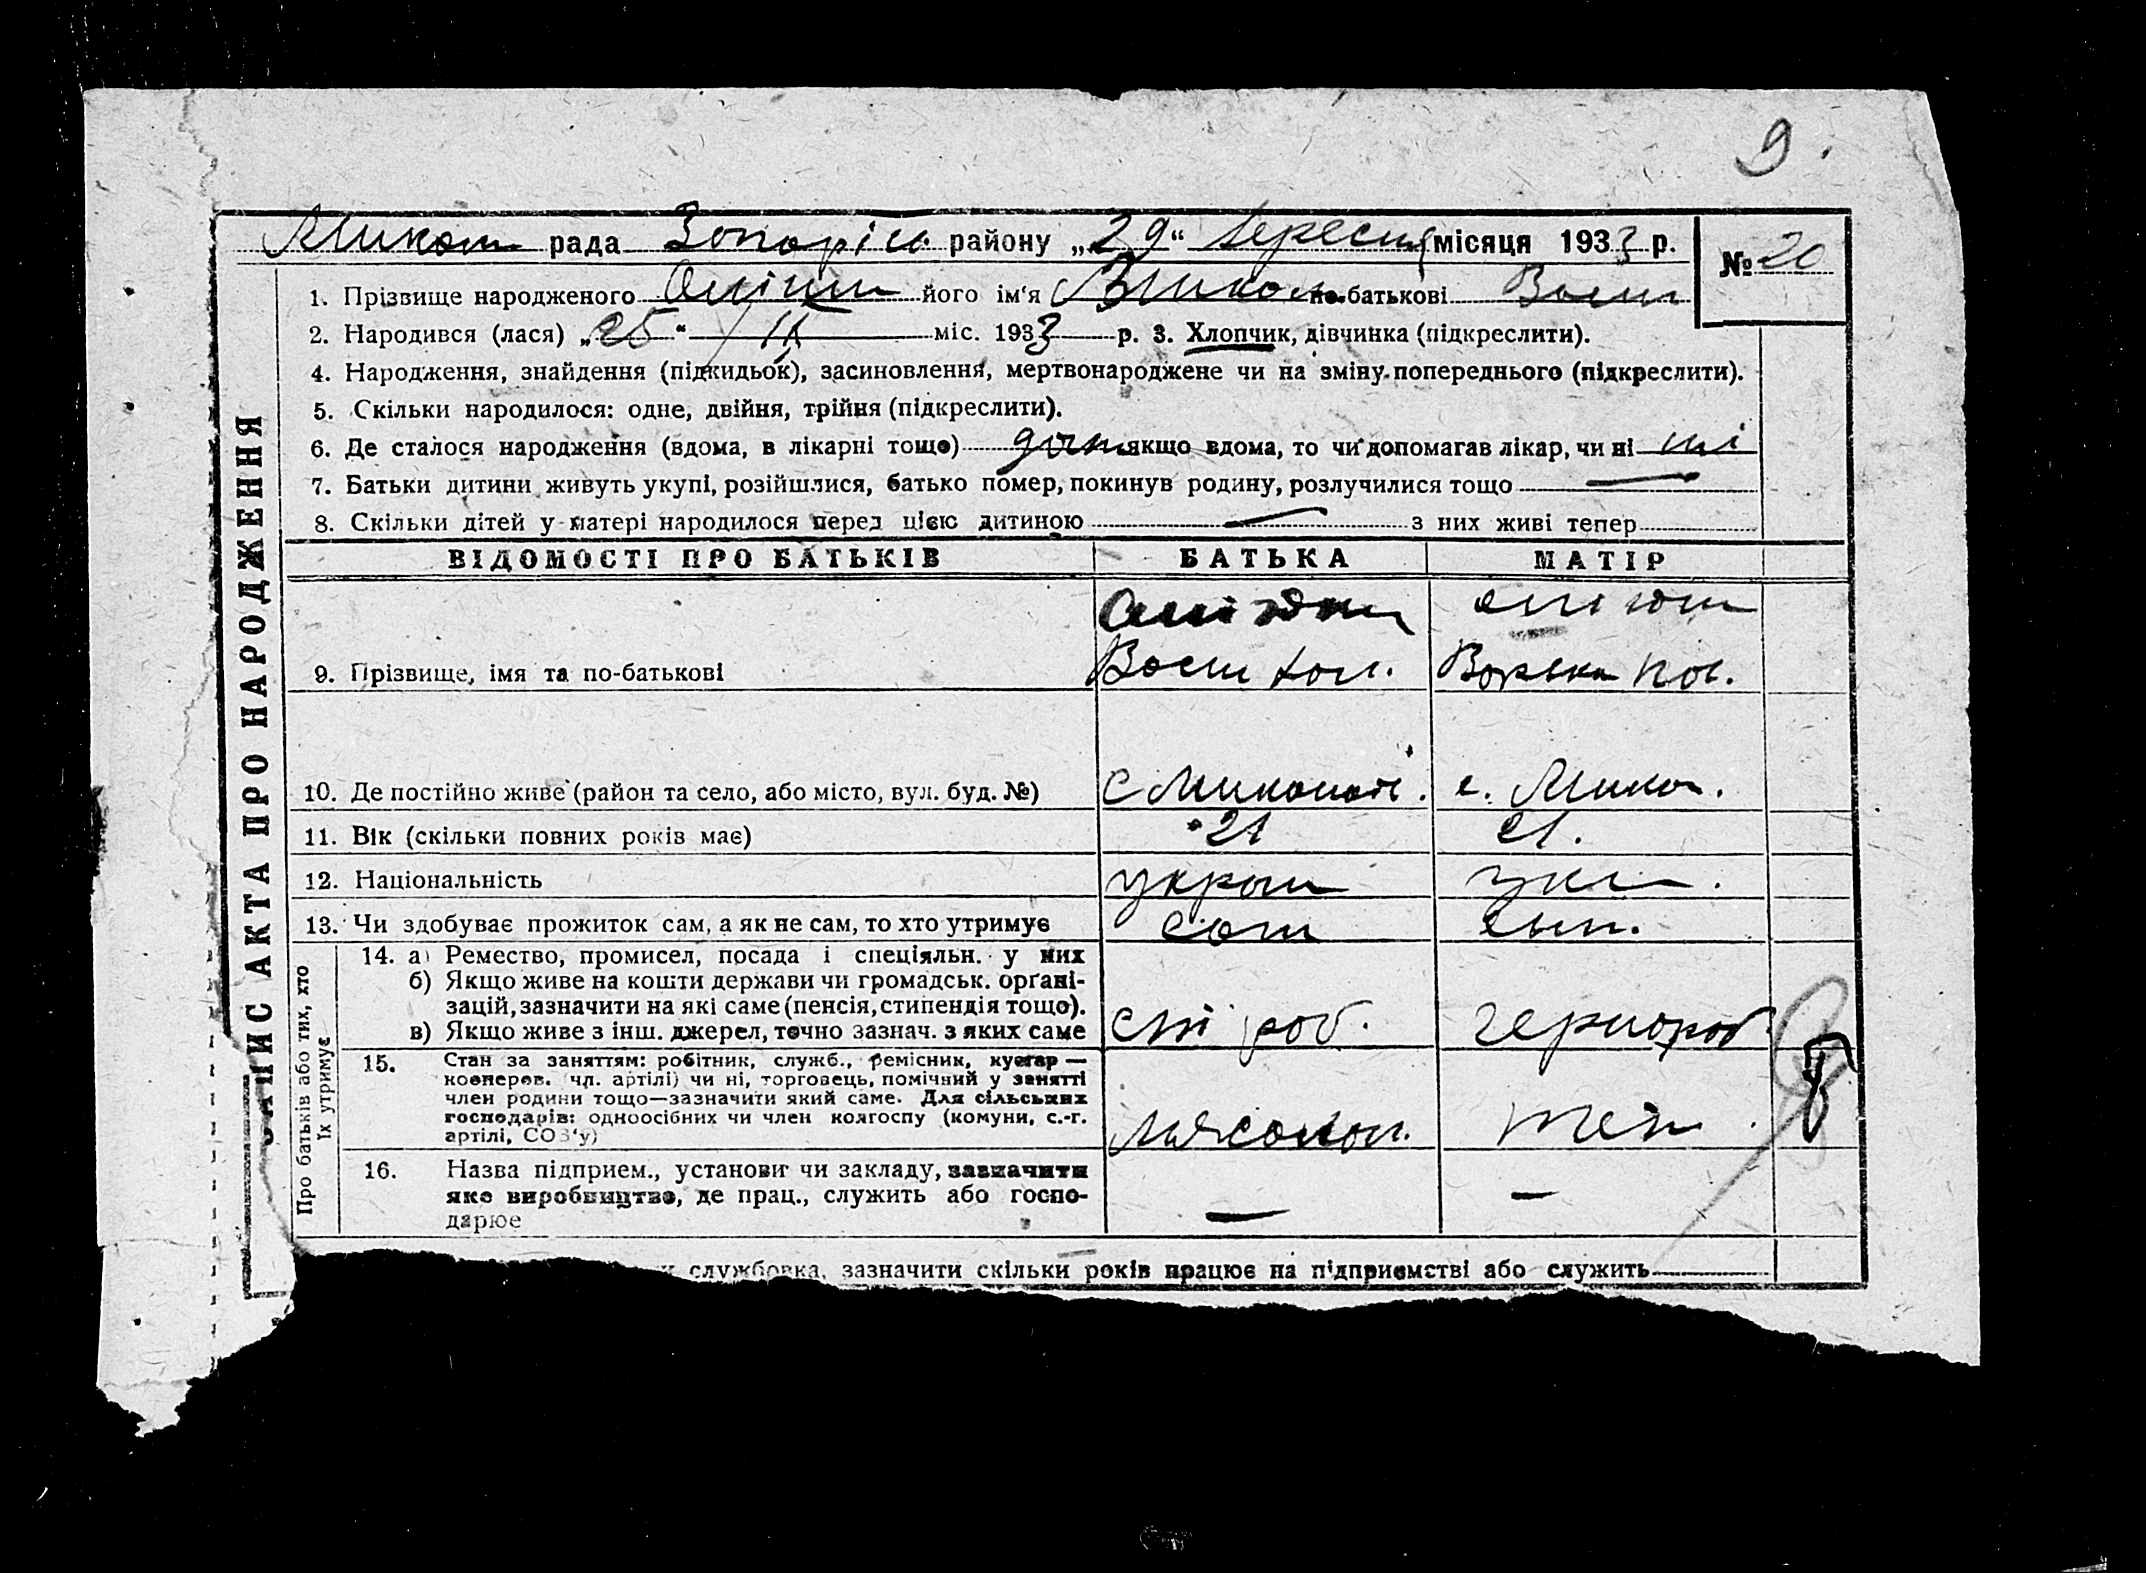 9.
рада Запоріс. району „29“ вересня місяця 1933 р.
№ 20
1. Прізвище народженого його ім'я Микол по-батькові Васил
2. Народився (лася) „25“ / ІХ міс. 1933 р. 3. Хлопчик, дівчинка (підкреслити).
4. Народження, знайдення (підкидьок), засиновлення, мертвонароджене чи на зміну попереднього (підкреслити).
5. Скільки народилося: одне, двійня, трійня (підкреслити).
6. Де сталося народження (вдома, в лікарні тощо) дом якщо вдома, то чи допомагав лікар, чи ні ні
7. Батьки дитини живуть укупі, розійшлися, батько помер, покинув родину, розлучилися тощо —
8. Скільки дітей у матері народилося перед цією дитиною — з них живі тепер
ВІДОМОСТІ ПРО БАТЬКІВ БАТЬКА МАТІР
9. Прізвище, імя та по-батькові
10. Де постійно живе (район та село, або місто, вул. буд. №) с. Микол.
11. Вік (скільки повних років має) 21 21.
12. Національність украин укр.
13. Чи здобуває прожиток сам, а як не сам, то хто утримує сам
14. а) Ремество, промисел, посада і спеціяльн. у них
б) Якщо живе на кошти держави чи громадськ. орґані-
зацій, зазначити на які саме (пенсія, стипендія тощо).
в) Якщо живе з інш. джерел, точно зазнач. з яких саме роб. чернороб
15. Стан за заняттям: робітник, служб., ремісник, кустар —
кооперов. (чл. артілі) чи ні, торговець, помічний у занятті
член родини тощо—зазначити який саме. Для сільських
господарів: одноосібних чи член колгоспу (комуни, с.-г.
артілі, СОЗ'у)
16. Назва підприєм., установи чи закладу, зазначити
яке виробництво, де прац., служить або госпо-
дарює — —
службовка, зазначити скільки років працює на підприємстві або служить
ЗАПИС АКТА ПРО НАРОДЖЕННЯ
Про батьків або тих, хто
їх утримує